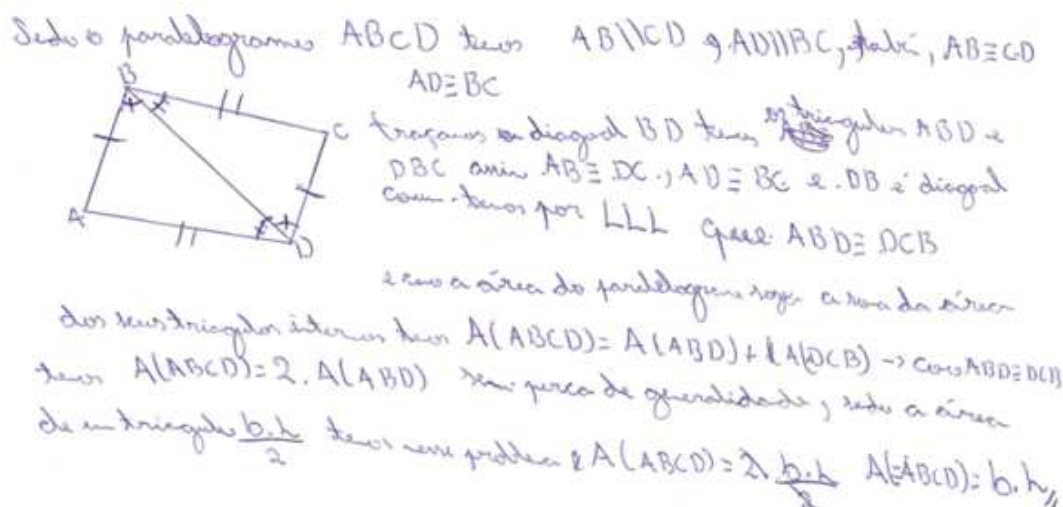 Sedo o paralelogramo ABCD temos AB||CD e AD||BC, AB≡CD
AD≡BC
B
C
A
D
traçamos a diagonal BD temos os triangulos ABD e
DBC assim AB≡DC, AD≡BC e DB é diagonal
comum temos por LLL que ABD≡DCB
a área do a soma da área
dos seus triangulos internos temos A(ABCD)=A(ABD)+A(DCB) → como ABD≡DCB
temos A(ABCD)=2.A(ABD) sem perca de generalidade, sedo a área
de um triangulo b.h/2 temos nesse problema A(ABCD)=2.b.h/2 A(ABCD)=b.h//